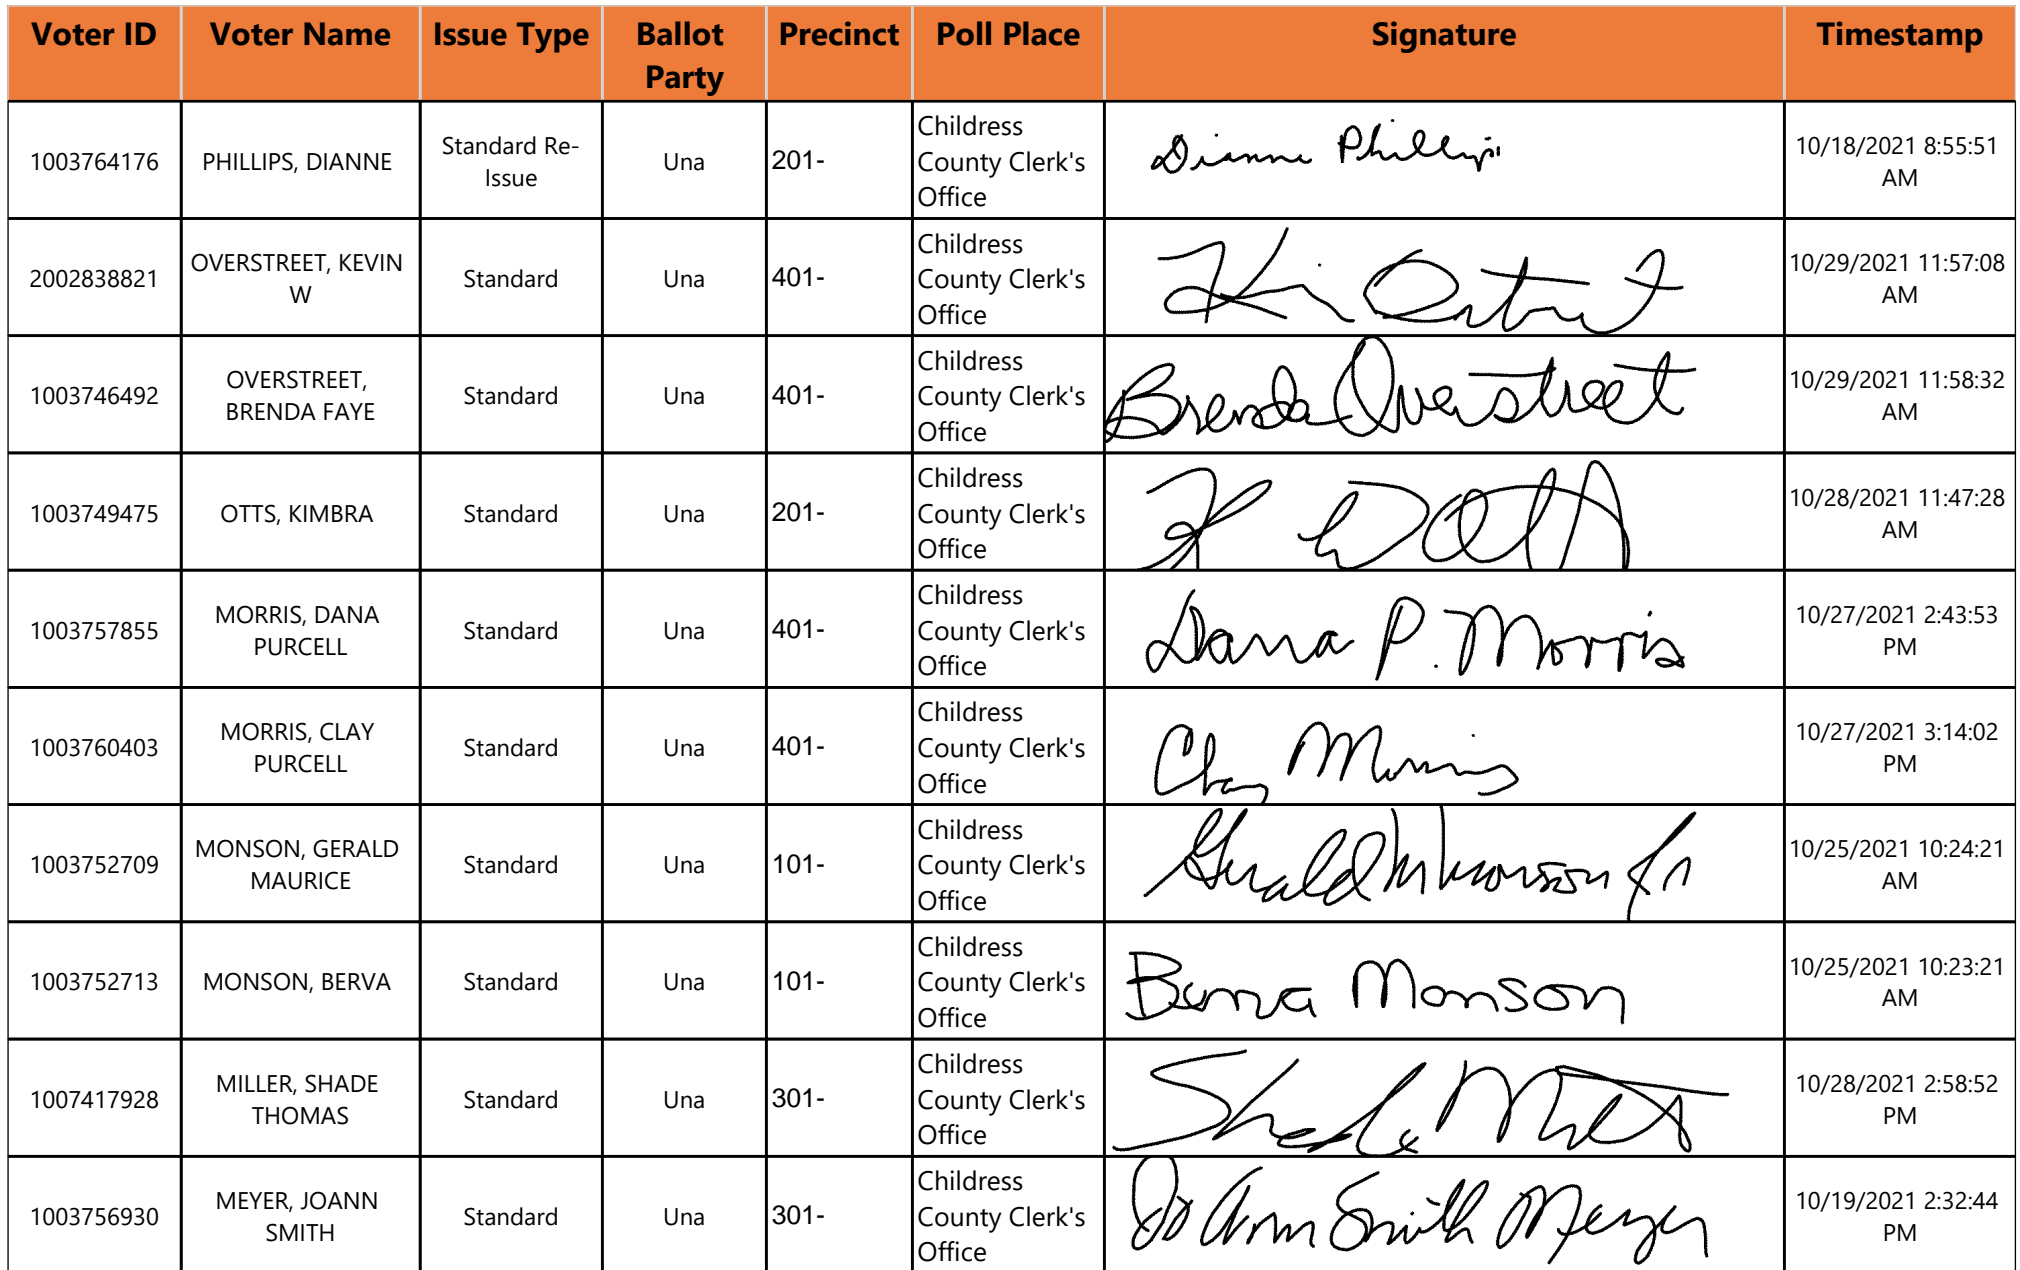 Voter ID Voter Name Issue Type Ballot Party Precinct Poll Place Signature Timestamp
1003764176 PHILLIPS, DIANNE Standard Re-Issue Una 201- Childress County Clerk's Office Dianne Phillips 10/18/2021 8:55:51 AM
2002838821 OVERSTREET, KEVIN W Standard Una 401- Childress County Clerk's Office 10/29/2021 11:57:08 AM
1003746492 OVERSTREET, BRENDA FAYE Standard Una 401- Childress County Clerk's Office Brenda Overstreet 10/29/2021 11:58:32 AM
1003749475 OTTS, KIMBRA Standard Una 201- Childress County Clerk's Office 10/28/2021 11:47:28 AM
1003757855 MORRIS, DANA PURCELL Standard Una 401- Childress County Clerk's Office Dana P. Morris 10/27/2021 2:43:53 PM
1003760403 MORRIS, CLAY PURCELL Standard Una 401- Childress County Clerk's Office Clay Morris 10/27/2021 3:14:02 PM
1003752709 MONSON, GERALD MAURICE Standard Una 101- Childress County Clerk's Office Gerald M Monson Jr 10/25/2021 10:24:21 AM
1003752713 MONSON, BERVA Standard Una 101- Childress County Clerk's Office Berva Monson 10/25/2021 10:23:21 AM
1007417928 MILLER, SHADE THOMAS Standard Una 301- Childress County Clerk's Office 10/28/2021 2:58:52 PM
1003756930 MEYER, JOANN SMITH Standard Una 301- Childress County Clerk's Office Jo Ann Smith Meyer 10/19/2021 2:32:44 PM